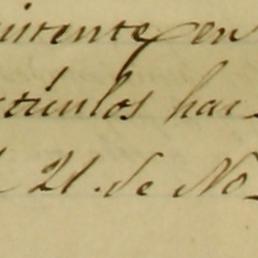 uirente en
ctículos har-
21. de No-